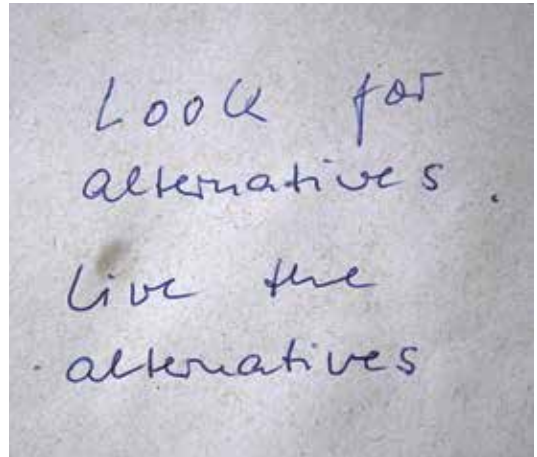 Look for
alternatives.
Live the
alternatives